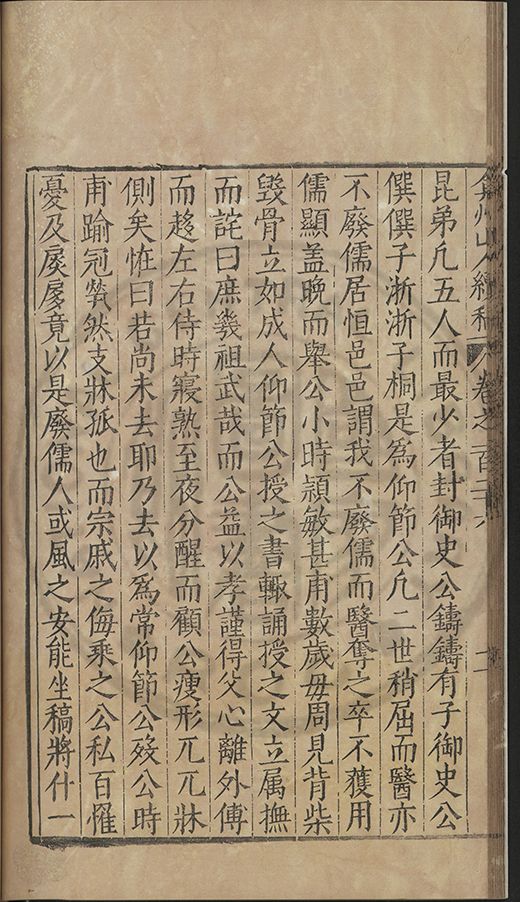 弇州山人續稿 卷之一百二十六
昆弟凡五人而最少者封御史公鑄鑄有子御史公
僎僎子浙浙子桐是為仰節公凡二世稍屈而醫亦
不廢儒居恒邑邑謂我不廢儒而醫奪之卒不獲用
儒顯盖晚而舉公小時頴敏甚甫數歲毋周見背柴
毀骨立如成人仰節公授之書輙誦授之文立属撫
而詫曰庶幾祖武哉而公益以孝謹得父心離外傅
而趍左右侍時寢熟至夜分醒而顧公瘦形兀兀牀
側矣恠曰若尚未去耶乃去以為常仰節公歿公時
甫踰冠煢然支牀孤也而宗戚之侮乘之公私百惟
憂及扊扅竟以是廢儒人或風之安能坐稿將什一